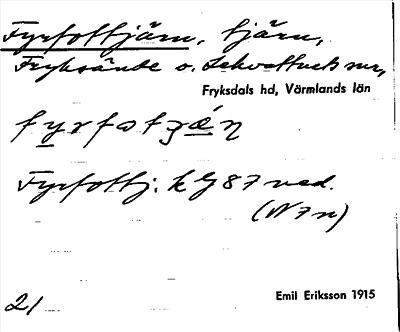 Fyrfottjärn, tjärn,
Fryksände o. Lekvattnets snr,
Fryksdals hd, Värmlands län
fyrfotʒǽn
Fyrfottj. k G 87 ned.
(N 7 n)
Emil Eriksson 1915
21